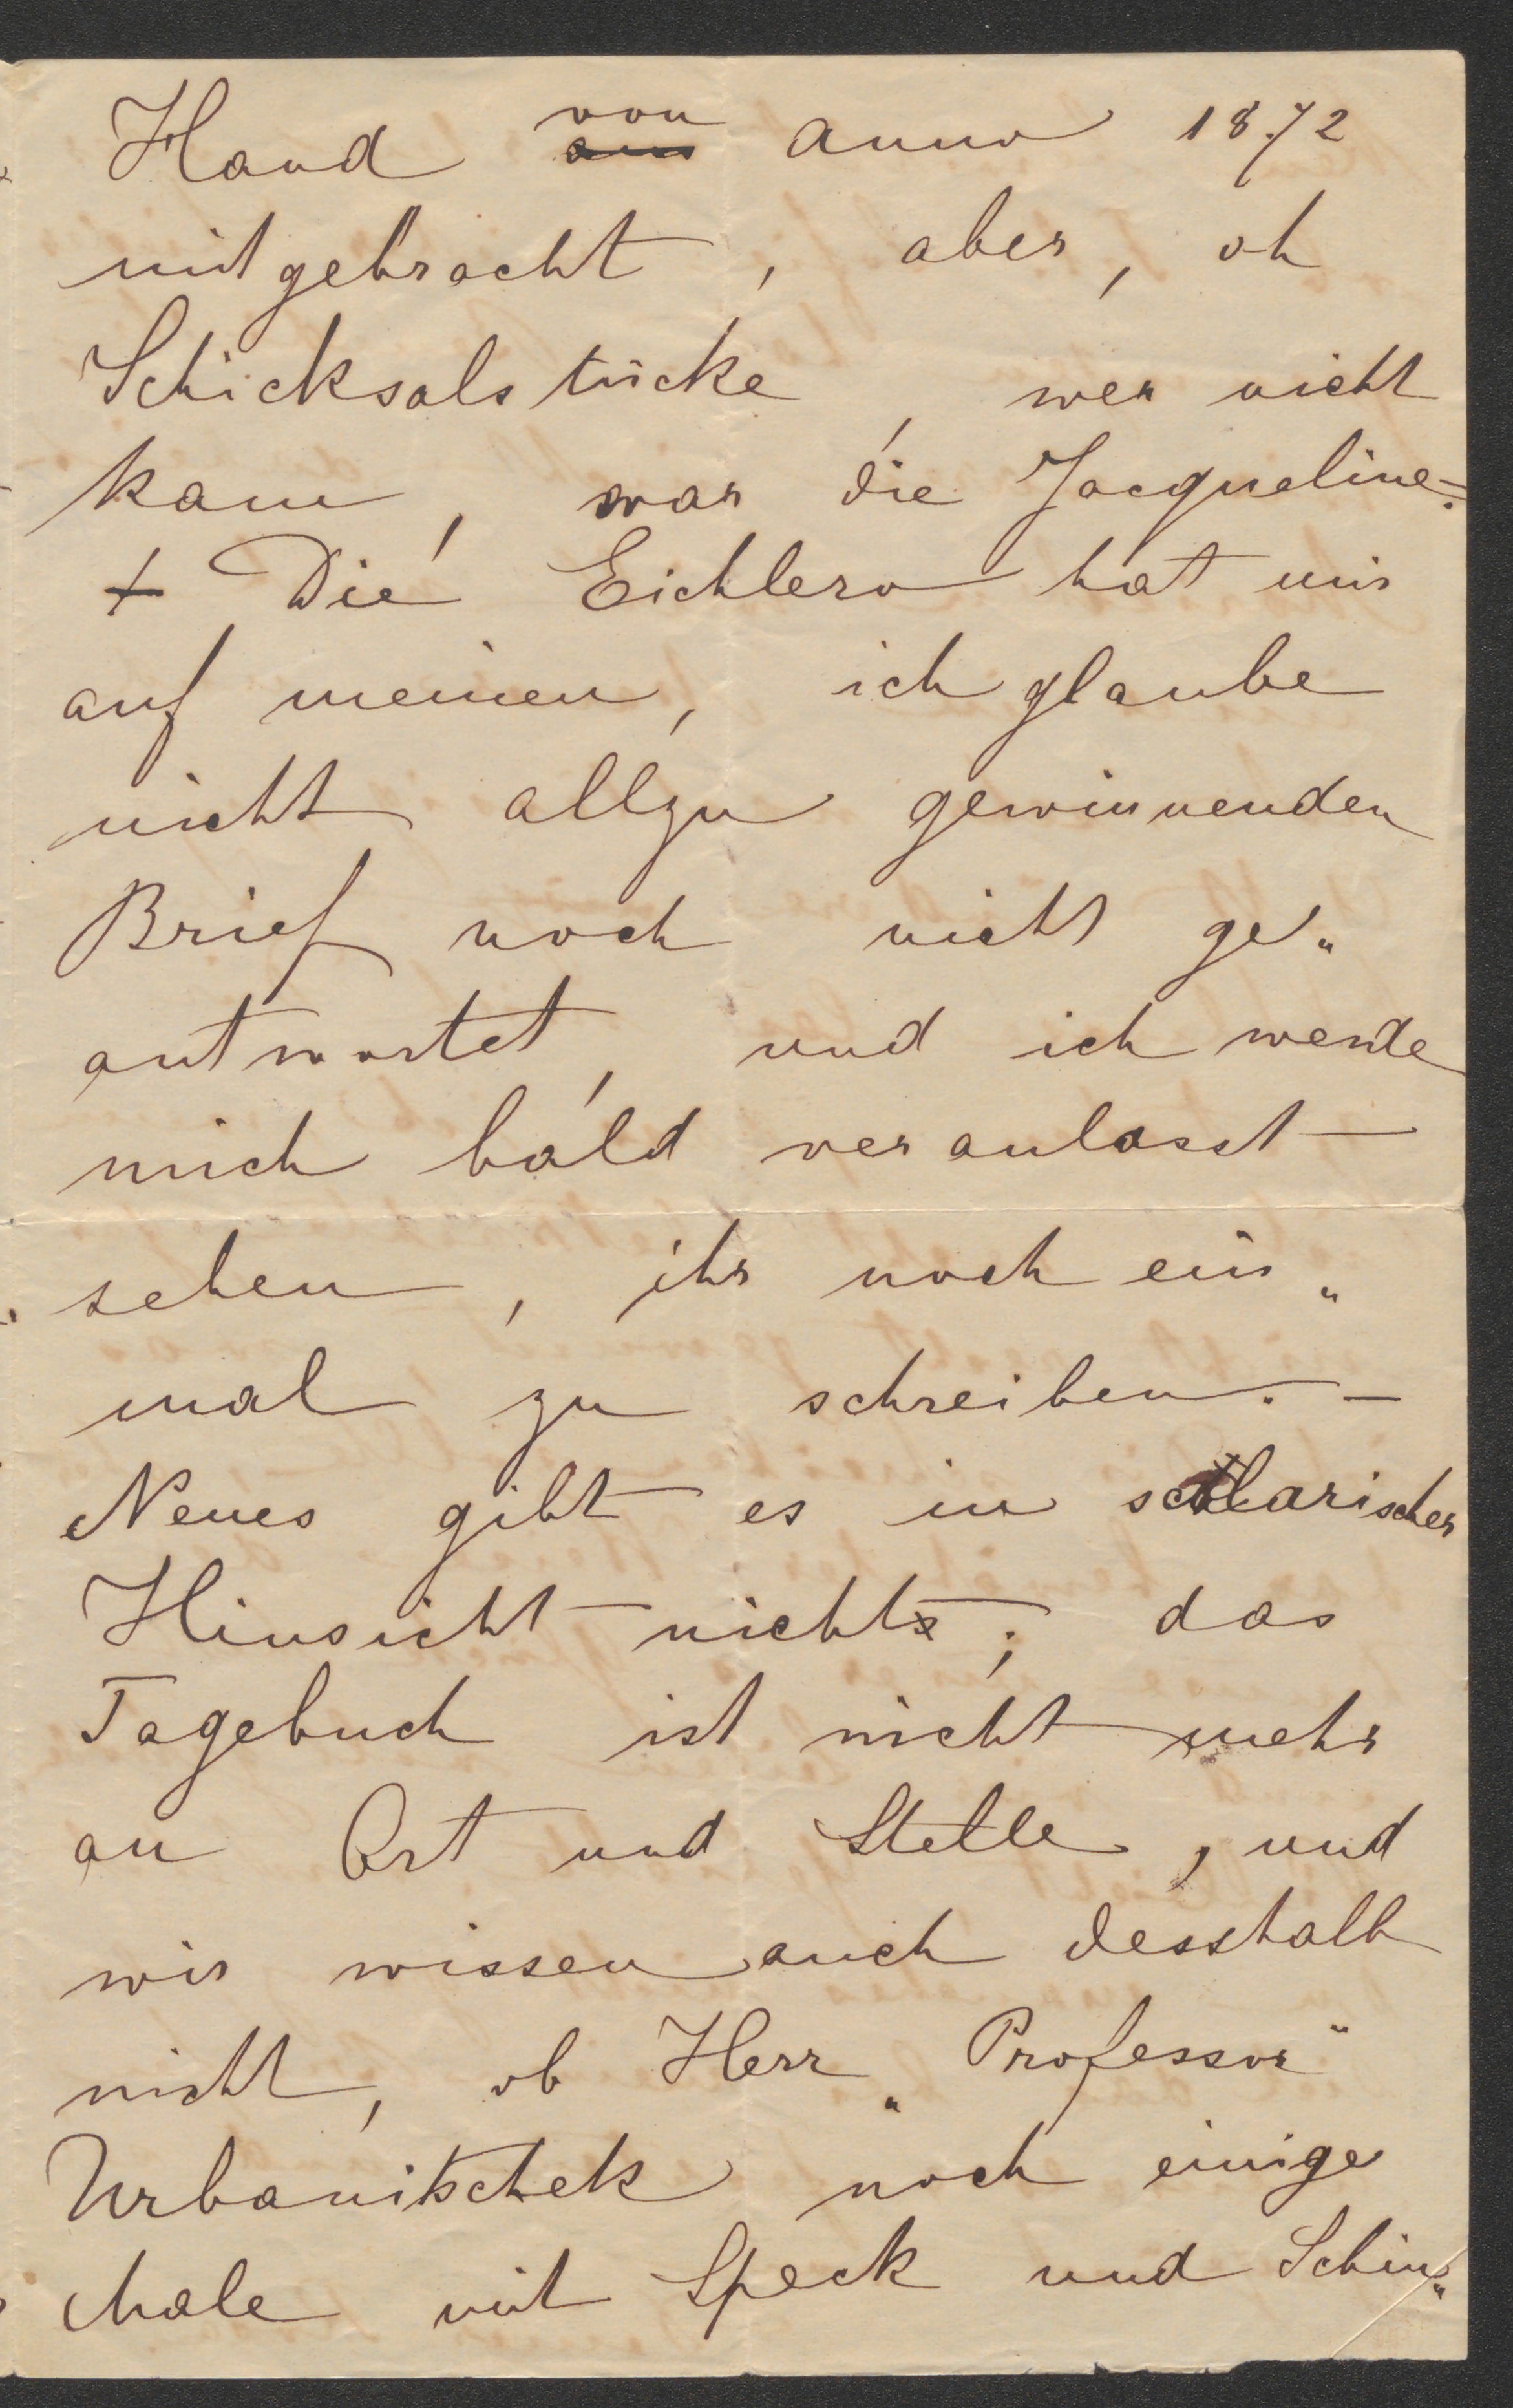 Hand von anno 1872
mitgebracht, aber, oh
Schicksalstücke, wer nicht
kam, war die Jacqueline.
+ Die Eichlero hat mir
auf meinen, ich glaube
nicht allzu gewinnenden
Brief noch nicht ge„
antwortet, und ich werde
mich bald veranlasst
sehen, ihr noch ein„
mal zu schreiben. –
Neues gibt es in
Hinsicht nichts; das
Tagebuch ist nicht mehr
an Ort und Stelle, und
wir wissen auch desshalb
nicht, ob Herr „Professor“
Urbanitschek noch einige
Male mit Speck und Schin„